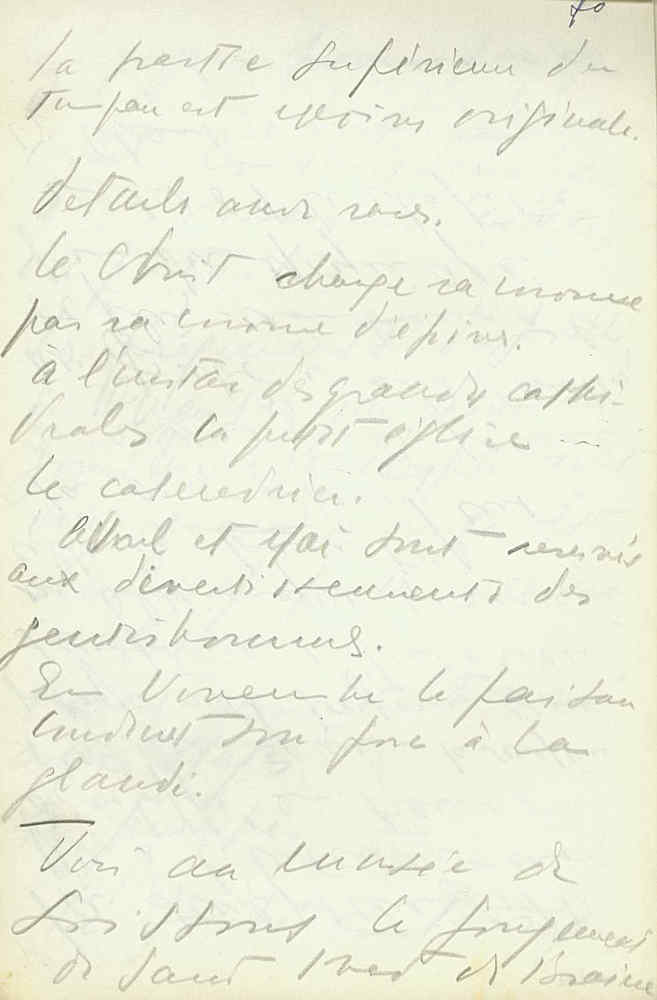 70
la partie supérieure du
tympan est moins originale.
Détails
le Christ change sa couronne
par sa couronne d'épines.
à l'instar des grandes cathé-
drales la petite église ...
le calendrier.
Avril et Mai sont réservés
aux divertissements des
gentilshommes.
En Novembre le paysan
conduit son porc à la
glandée.
Voir au musée de
Soissons le jugement
de Saint Yved de Braine